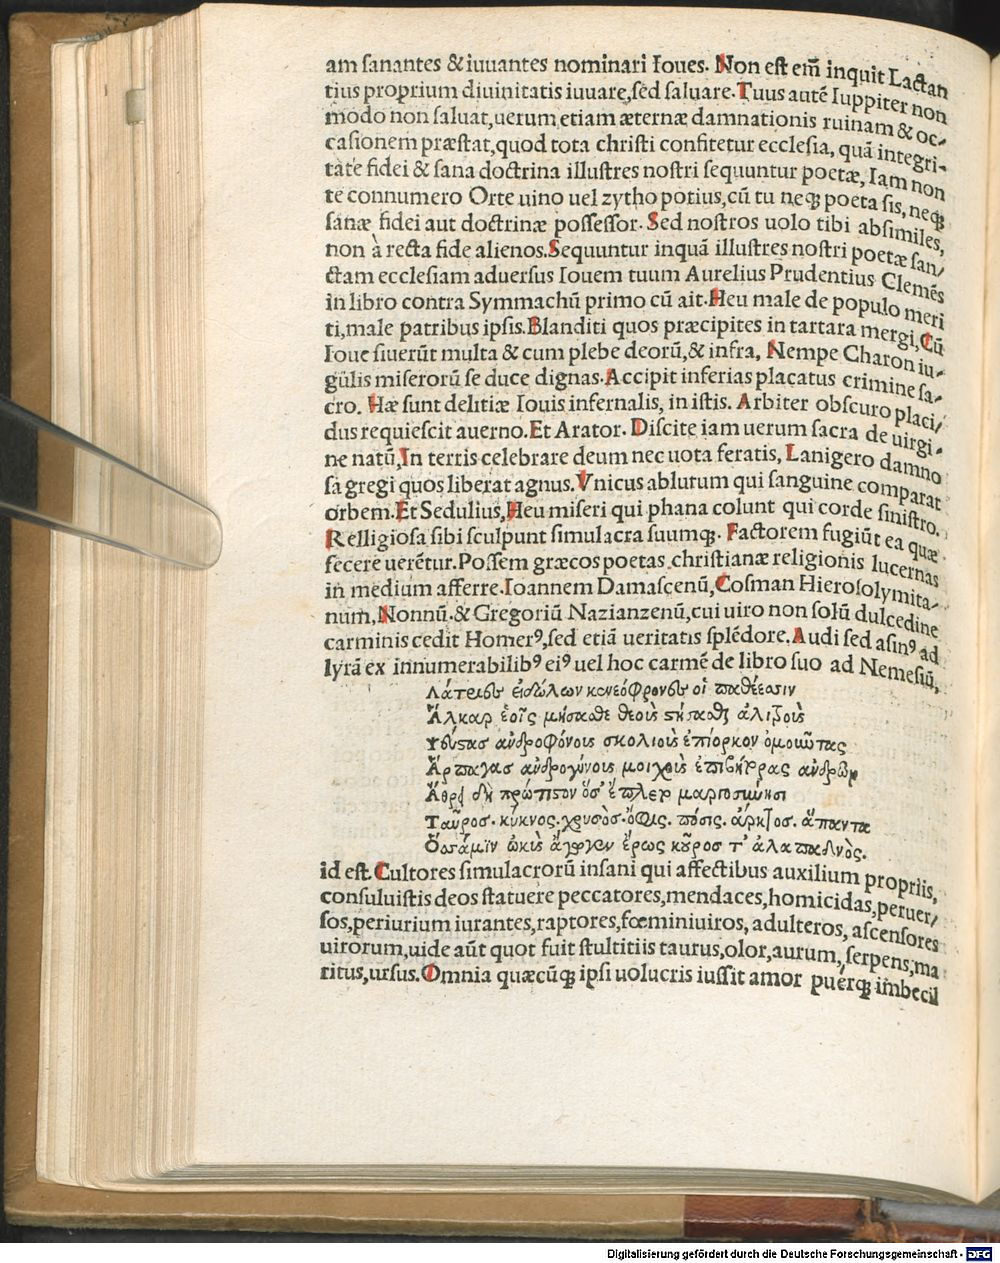 am sanantes & iuuantes nominari Ioues. Non est em̄ inquit Lactan
tius proprium diuinitatis iuuare, sed saluare. Tuus autē Iuppiter non
modo non saluat, uerum etiam æternæ damnationis ruinam & oc-
casionem præstat, quod tota christi confitetur ecclesia, quā integri-
tatē fidei & sana doctrina illustres nostri sequuntur poetæ, Iam non
te connumero Orte uino uel zytho potius, cū tu neqꝫ poeta sis, neqꝫ
sanæ fidei aut doctrinæ possessor. Sed nostros uolo tibi absimiles,
non à recta fide alienos. Sequuntur inquā illustres nostri poetæ san/
ctam ecclesiam aduersus Iouem tuum Aurelius Prudentius Clemēs
in libro contra Symmachū primo cū ait. Heu male de populo meri
ti, male patribus ipsis. Blanditi quos præcipites in tartara mergi, Cū
Ioue siuerūt multa & cum plebe deorū, & infra, Nempe Charon iu-
gulis miserorū se duce dignas. Accipit inferias placatus crimine sa-
cro. Hæ sunt delitiæ Iouis infernalis, in istis. Arbiter obscuro placi/
dus requiescit auerno. Et Arator. Discite iam uerum sacra de uirgi-
ne natū, In terris celebrare deum nec uota feratis, Lanigero damno
sa gregi quos liberat agnus. Vnicus ablutum qui sanguine comparat
orbem. Et Sedulius, Heu miseri qui phana colunt qui corde sinistro.
Relligiosa sibi sculpunt simulacra suumqꝫ. Factorem fugiūt ea quæ
fecere uerētur. Possem græcos poetas christianæ religionis lucernas
in medium afferre. Ioannem Damascenū, Cosman Hierosolymita-
num, Nonnū. & Gregoriū Nazianzenū, cui uiro non solū dulcedine
carminis cedit Homerꝰ, sed etiā ueritatis splēdore. Audi sed asinꝰ ad
lyrā ex innumerabilibꝰ eiꝰ uel hoc carmē de libro suo ad Nemesiū,
εἰδώλων κενεόφρονες οἱ παθέεσσιν
Ἄλκαρ ἑοῖς μήσασθε θεοὺς στήσασθ' ἀλιτροὺς
Ψεύστας ἀνδροφόνους σκολιοὺς ἐπίορκον ὀμοιῶτας
Ἅρπαγας ἀνδρογύνους μοιχοὺς ἐπιβήτορας ἀνδρῶν
Ἄθρει δὴ πρώτιστον ὅσ' ἔπλεν μαργοσύνησι
Ταῦρος. κύκνος. χρυσὸς. ὄφις. πόσις. ἄρκτος. ἅπαντα
Ὅσσ' ἄμμιν ὠκὺς ἄνωγεν ἔρως κοῦρος τ' ἀλαπαδνὸς.
id est. Cultores simulacrorū insani qui affectibus auxilium propriis,
consuluistis deos statuere peccatores, mendaces, homicidas, peruer/
sos, periurium iurantes, raptores, fœminiuiros, adulteros, ascensores
uirorum, uide aūt quot fuit stultitiis taurus, olor, aurum, serpens, ma
ritus, ursus. Omnia quæcūqꝫ ipsi uolucris iussit amor puerqꝫ imbecil
Digitalisierung gefördert durch die Deutsche Forschungsgemeinschaft - DFG